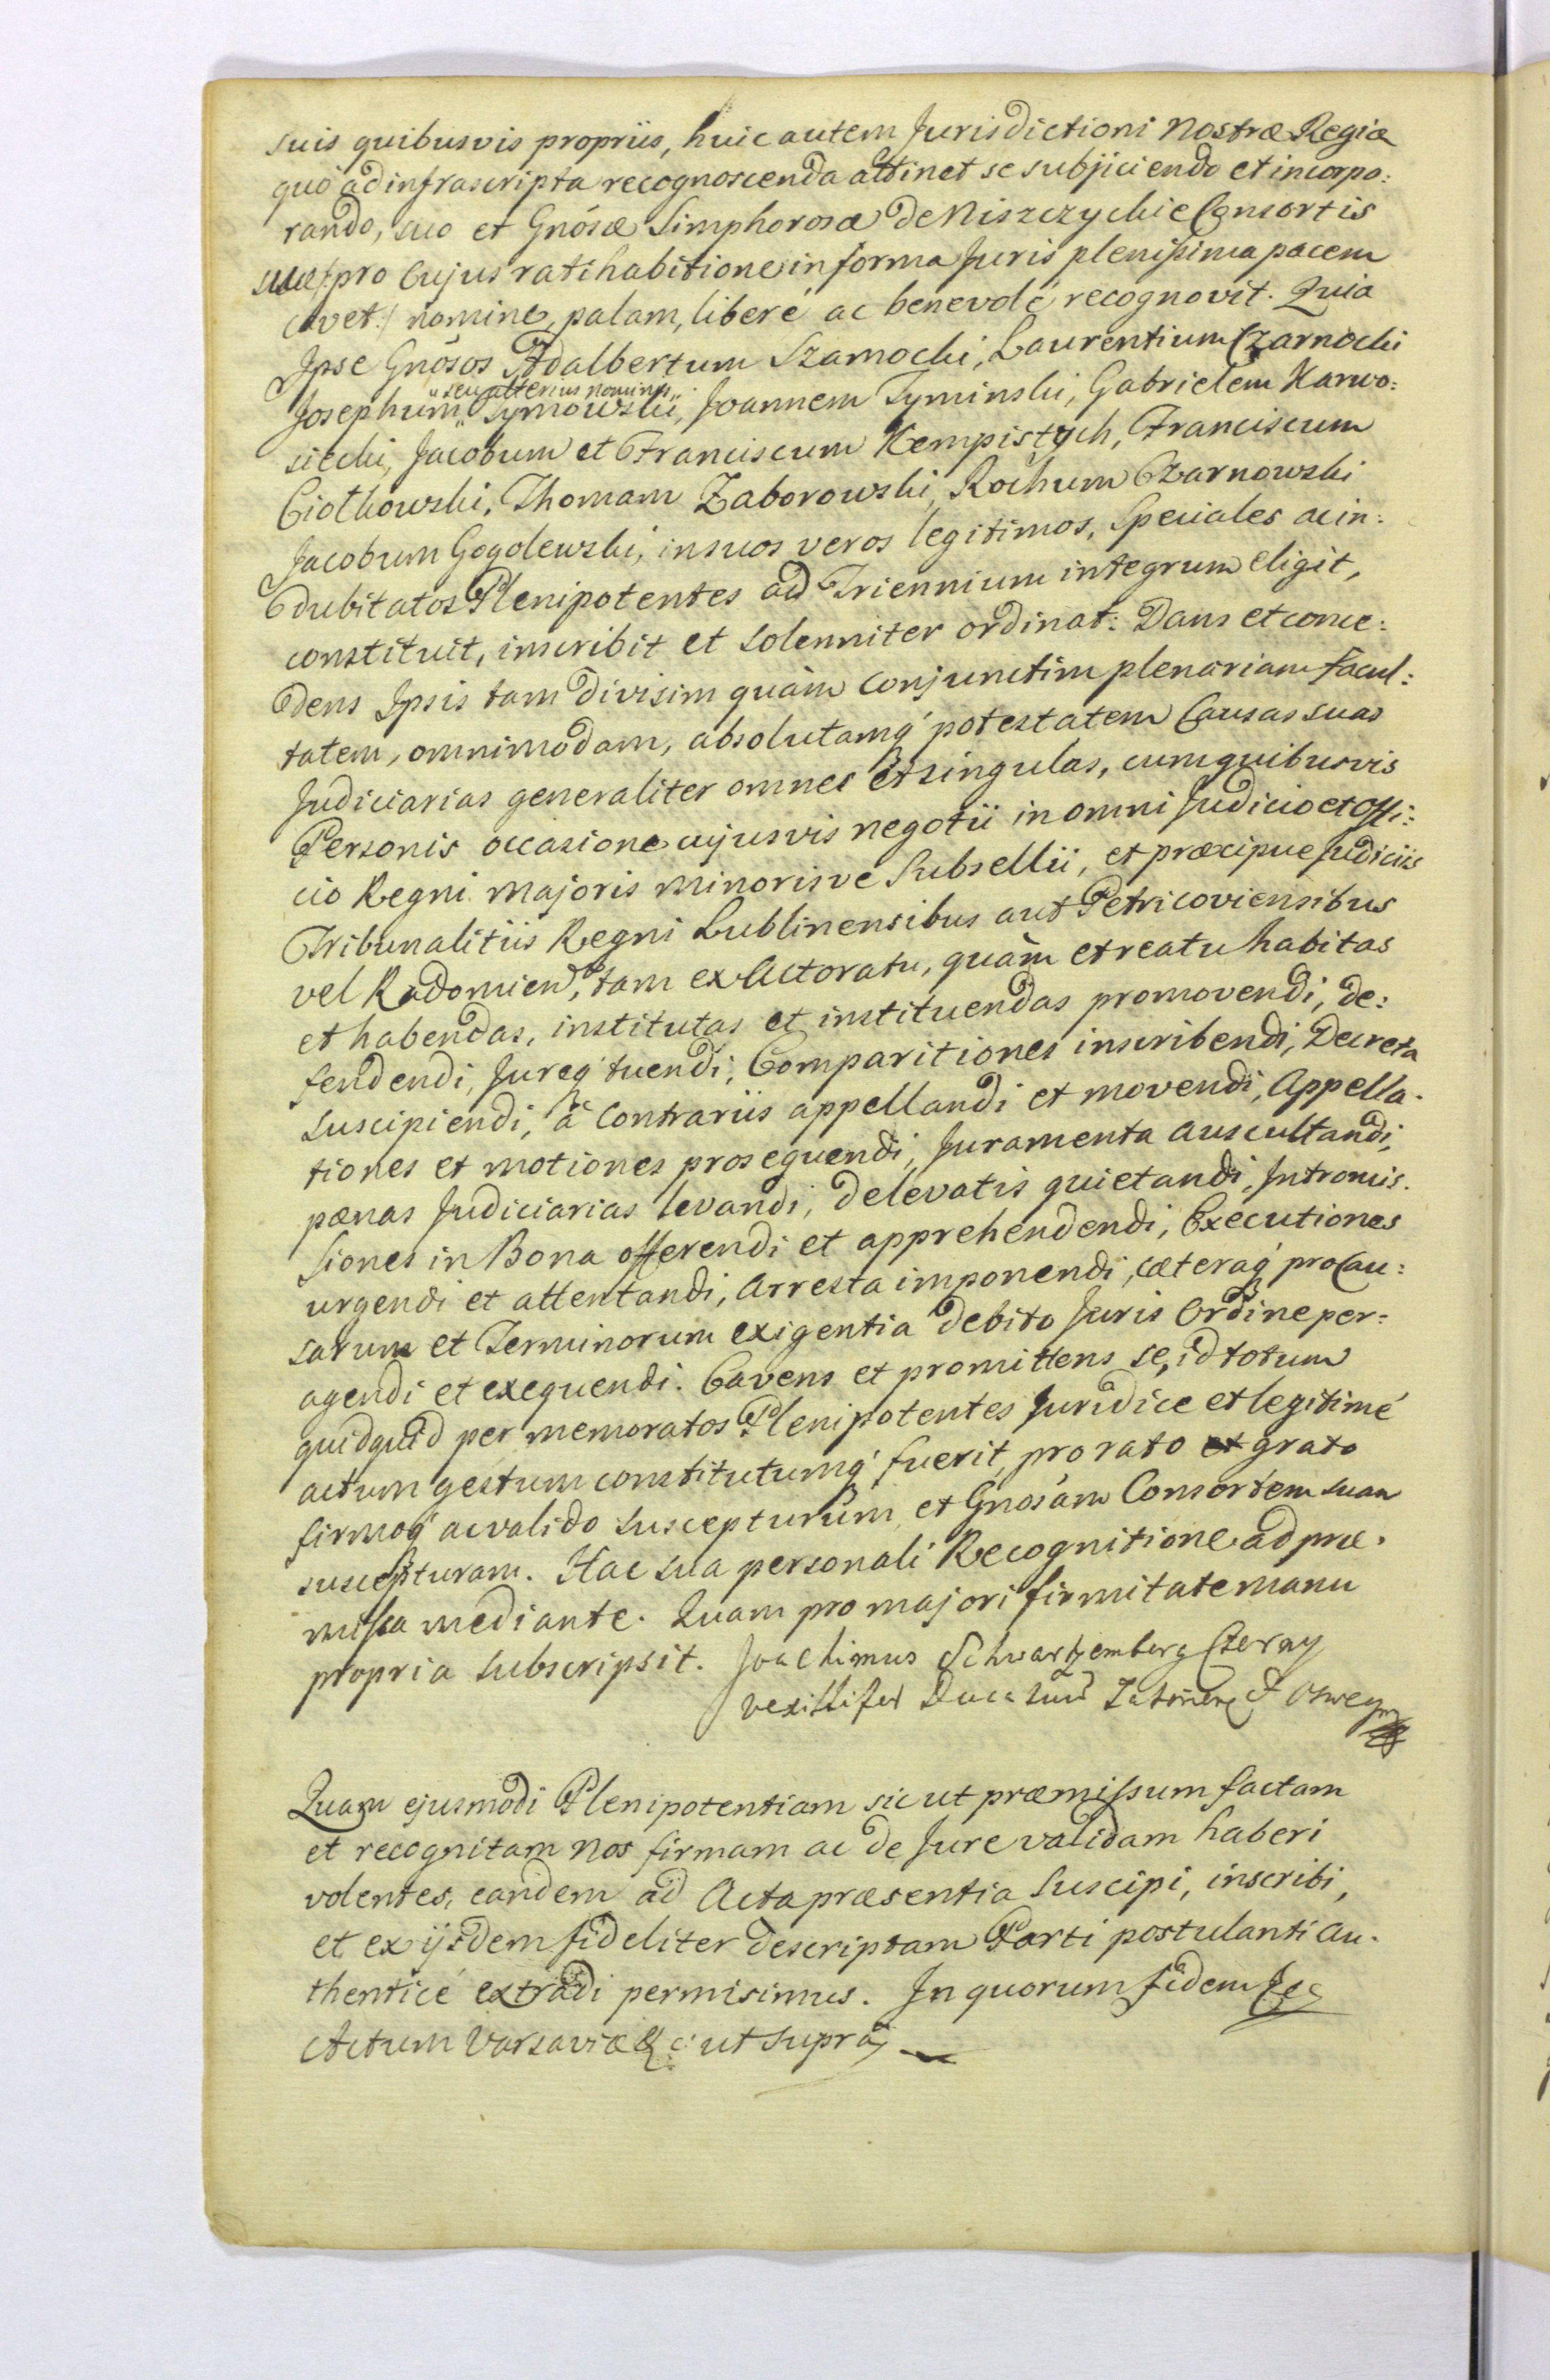 suis quibusvis propriis, huic autem Jurisdictioni Nostræ Regiæ
quo ad infrascripta recognoscenda attinet se subjiciendo et incorpo:
rando, suo et Gnósæ Simphorosæ de Niszczyckie Consortis
suæ /: pro cujus ratihabitione in forma Juris plenissima pacem
cavet :/ nomine, palam, liberé ac benevolé recognovit. Quia
Ipse Gnósos Adalbertum Szamocki, Laurentium Czarnocki
Josephum "seu alterius nominis" Tymowski, Joannem Tyminski, Gabrielem Karwo:
siecki, Jacobum et Franciscum Kempistych, Franciscum
Ciołkowski, Thomam Zaborowski, Rochum Czarnowski
Jacobum Gogolewski, in suos veros legitimos, Speciales ac in:
dubitatos Plenipotentes ad Triennium integrum eligit,
constituit, inscribit et solenniter ordinat: Dans et conce:
dens Ipsis tam divisim quàm conjunctim plenariam facul:
tatem, omnimodam, absolutamq́ potestatem Causas suas
Judiciarias generaliter omnes et singulas, cum quibusvis
Personis occasione cujusvis negotii in omni Judicio et Offi:
cio Regni majoris minorisve Subsellii, et præcipue Judiciis
Tribunalitiis Regni Lublinensibus aut Petricoviensibus
vel Radomien, tam ex Actoratu, quàm et reatu habitas
et habendas, institutas et instituendas promovendi, de:
fendendi, Jureq́ tuendi, Comparitiones inscribendi, Decreta
suscipiendi, à Contrariis appellandi et movendi, Appella.
tiones et motiones prosequendi, Juramenta auscultandi,
pænas Judiciarias levandi, de levatis quietandi, Intromis.
siones in Bona offerendi et apprehendendi, Executiones
urgendi et attentandi, Arresta imponendi, cæteraq́ pro Cau:
sarum et Terminorum exigentia debito Juris Ordine per:
agendi et exequendi. Cavens et promittens se, id totum
quidquid per memoratos Plenipotentes Juridice et legitimé
actum gestum constitutumq́ fuerit, pro rato et grato
firmoq́ ac valido suscepturum, et Gnosam Consortem suam
suscepturam. Hac sua personali Recognitione ad præ.
missa mediante. Quam pro majori firmitate manu
propria subscripsit. Joachimus Schwartzemberg Czerny
vexillifer Ducatuu Zatorien et Oswe

Quam ejusmodi Plenipotentiam sic ut præmissum factam
et recognitam Nos firmam ac de Jure validam haberi
volentes, eandem ad Acta præsentia suscipi, inscribi,
et ex ijsdem fideliter descriptam Parti postulanti au.
thenticé extradi permisimus. In quorum fidem &c
Actum Varsaviæ &c: ut supra,